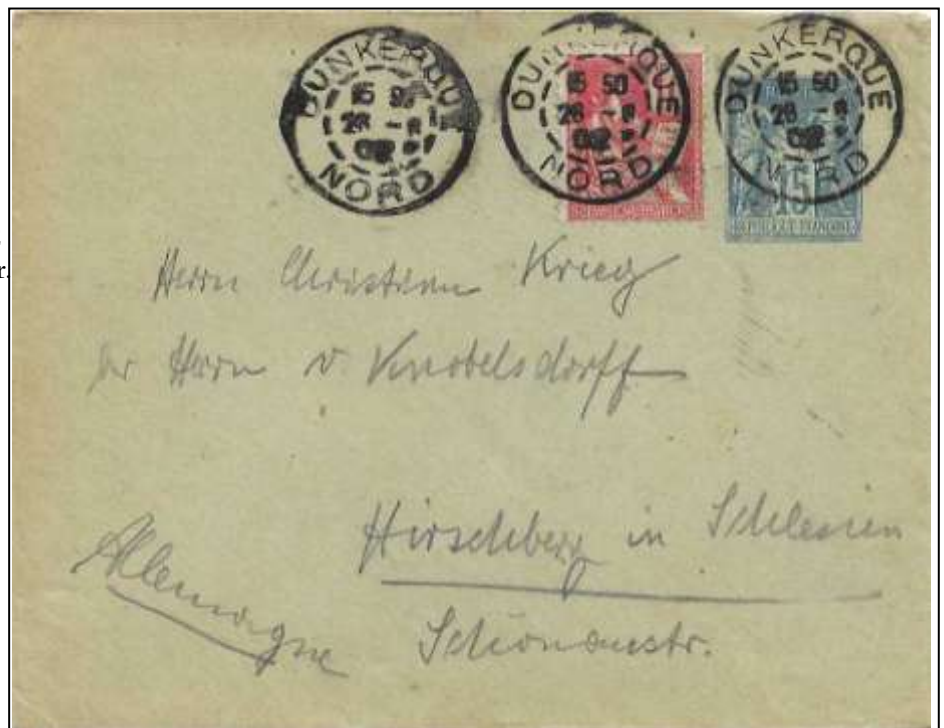 DUNKERQUE
15 50
26 -
02
NORD
DUNKERQUE
15 50
26 -
02
NORD
DUNKERQUE
15 50
26 -
02
NORD
15
REPUBLIQUE FRANCAISE
r.
Herrn Christian Krieg
Herrn v. Knobelsdorff
Hirschberg in Schlesien
Allemagne
Schönaustr.